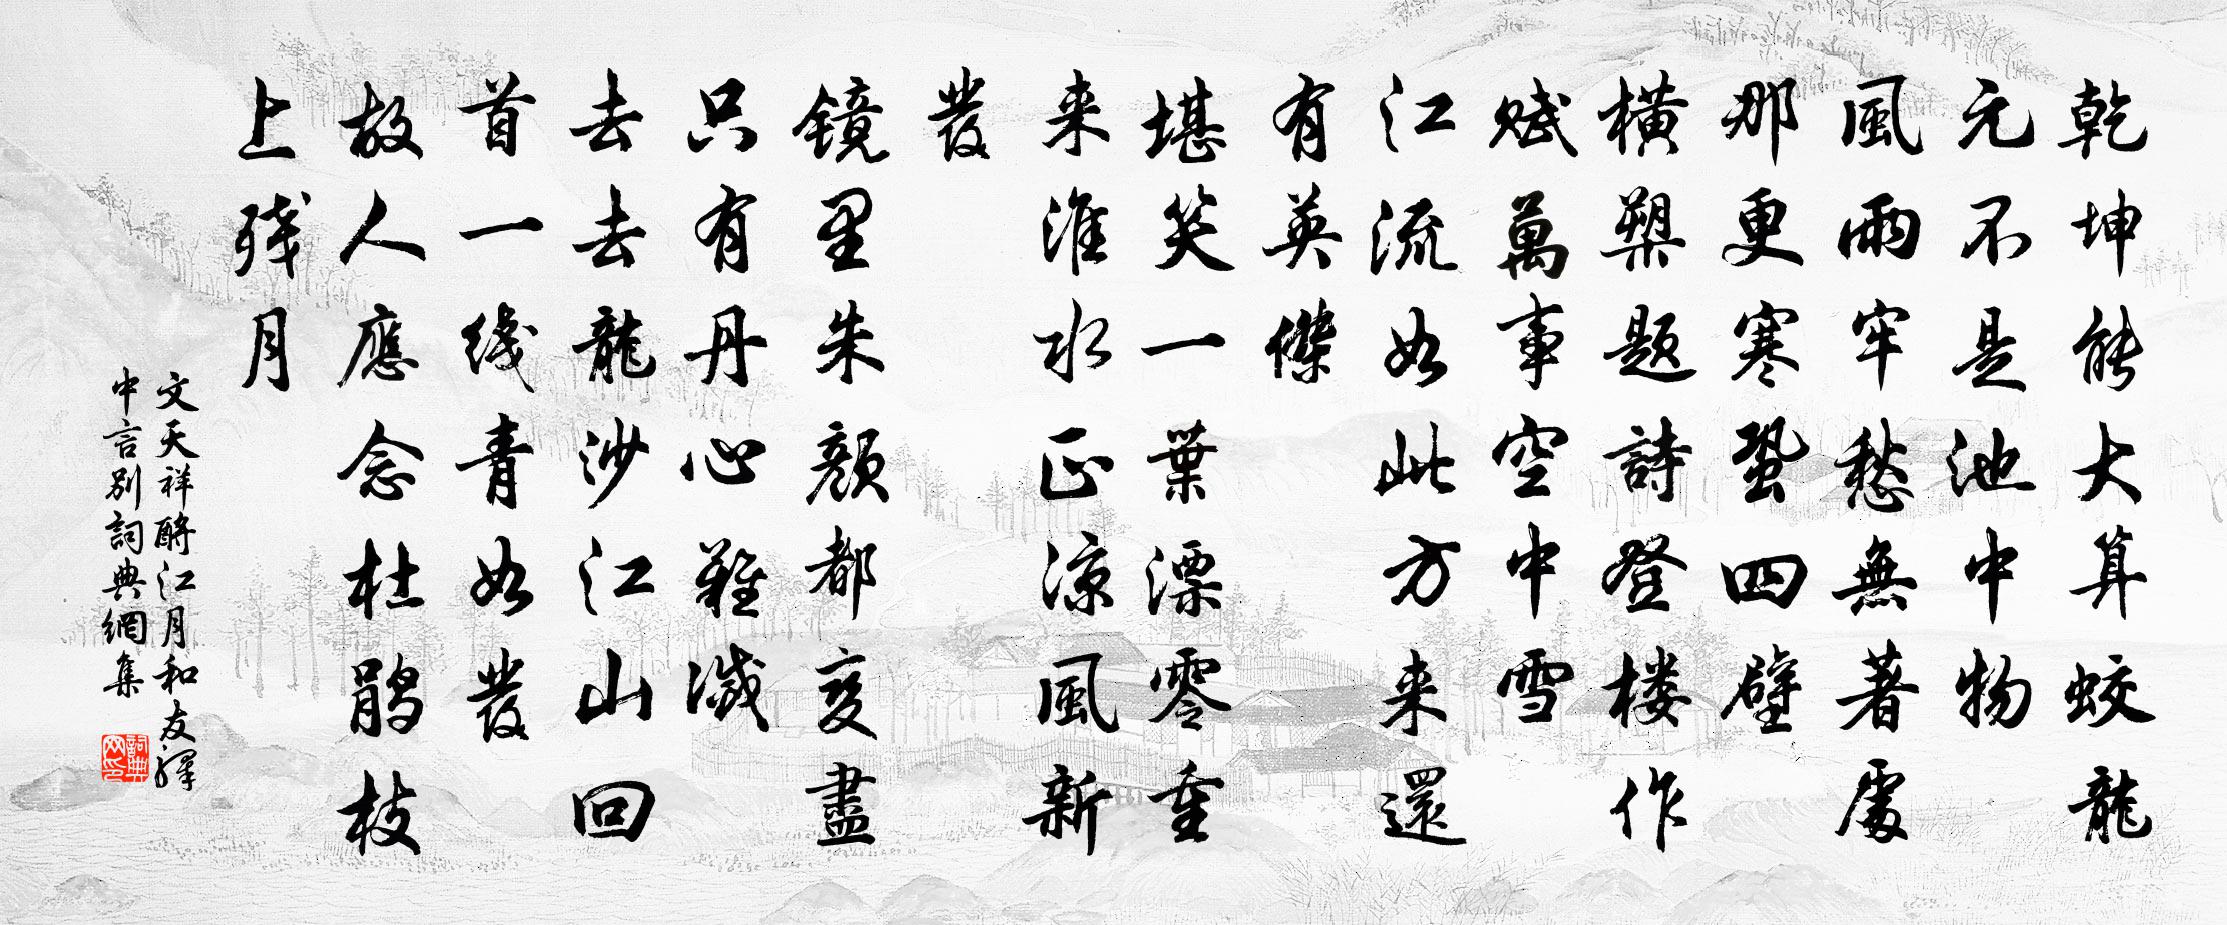 乾坤能大算蛟龍
元不是池中物
風雨牢愁無著處
那更寒蛩四壁
橫槊題詩登楼作
賦萬事空中雪
江流如此方来還
有英傑
堪笑一葉漂零重
来淮水正涼風新
發
鏡里朱颜都变盡
只有丹心難滅
去去龍沙江山回
首一线青如發
故人應念杜鹃枝
上残月
文天祥酹江月和友驛
中言别詞典網集
詞典网印